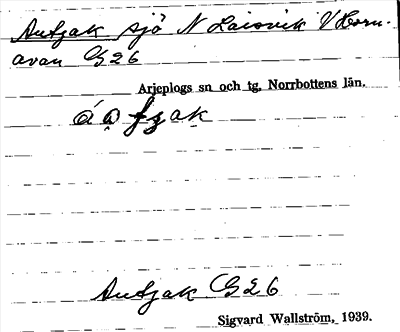 Autjak sjö N Laisvik V Horn-
avan G26
Arjeplogs sn och tg, Norrbottens län.
Autjak G26
Sigvard Wallström, 1939.